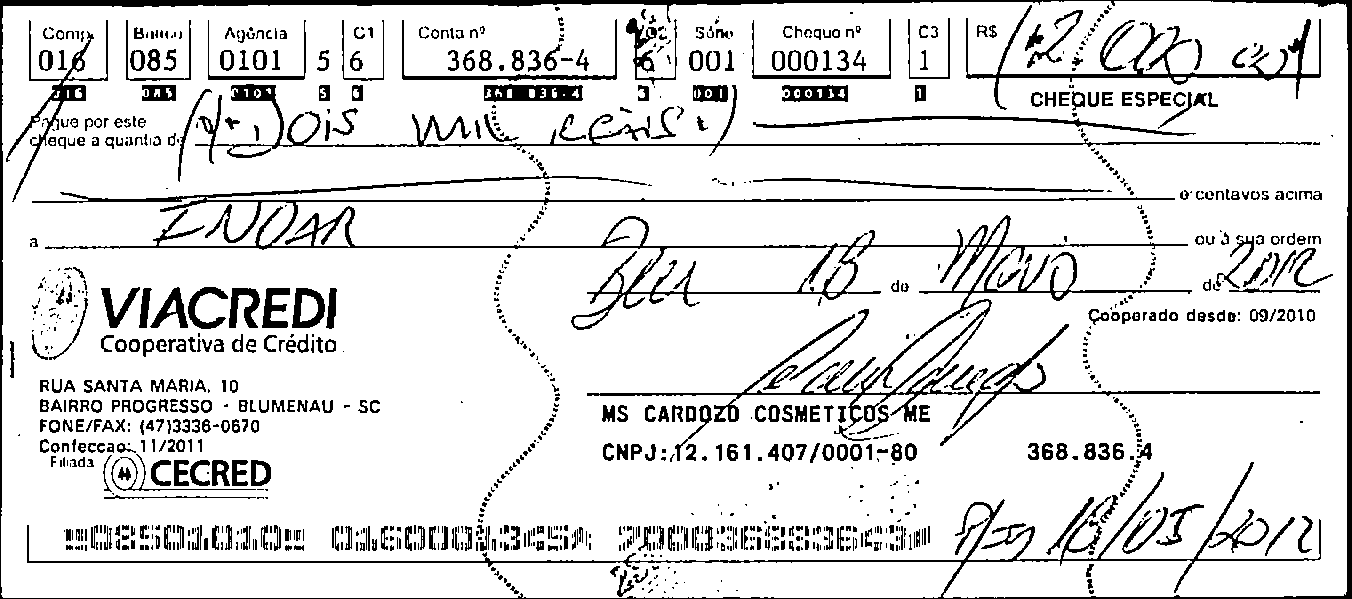 Comp. Banco Agência C1 Conta nº Série Cheque nº C3 R$
016 085 0101 5 6 368.836-4 6 001 000134 1 (*2.000,00*)
016 085 0101 5 6 368 836.4 6 001 000134 1 CHEQUE ESPECIAL
Pague por este
cheque a quantia de (* Dois mil reais *)
e centavos acima
a ENOAR ou à sua ordem
Blu 18 de Maio de 2012
Cooperado desde: 09/2010
VIACREDI
Cooperativa de Crédito
RUA SANTA MARIA, 10
BAIRRO PROGRESSO - BLUMENAU - SC
FONE/FAX: (47)3336-0670
Confeccao: 11/2011
Filiada CECRED
MS CARDOZO COSMETICOS ME
CNPJ: 12.161.407/0001-80 368.836.4
18/05/2012